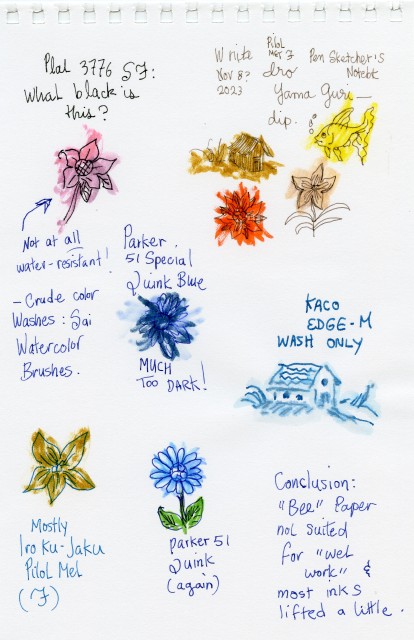 Plat 3776 SF:
What black is
this?
Write
Nov 8?
2023
Pilot
Met F
Iro
Pen Sketcher's
Notebk
Yama Guri
dip.
Not at all
water-resistant!
- Crude color
Washes: Sai
Watercolor
Brushes.
Parker
51 Special
Quink Blue
MUCH
TOO DARK!
KACO
EDGE-M
WASH ONLY
Mostly
Iro Ku-Jaku
Pilot Met
(F)
Parker 51
Quink
(again)
Conclusion:
"Bee" Paper
not suited
for "wet
work" &
most inks
lifted a little.